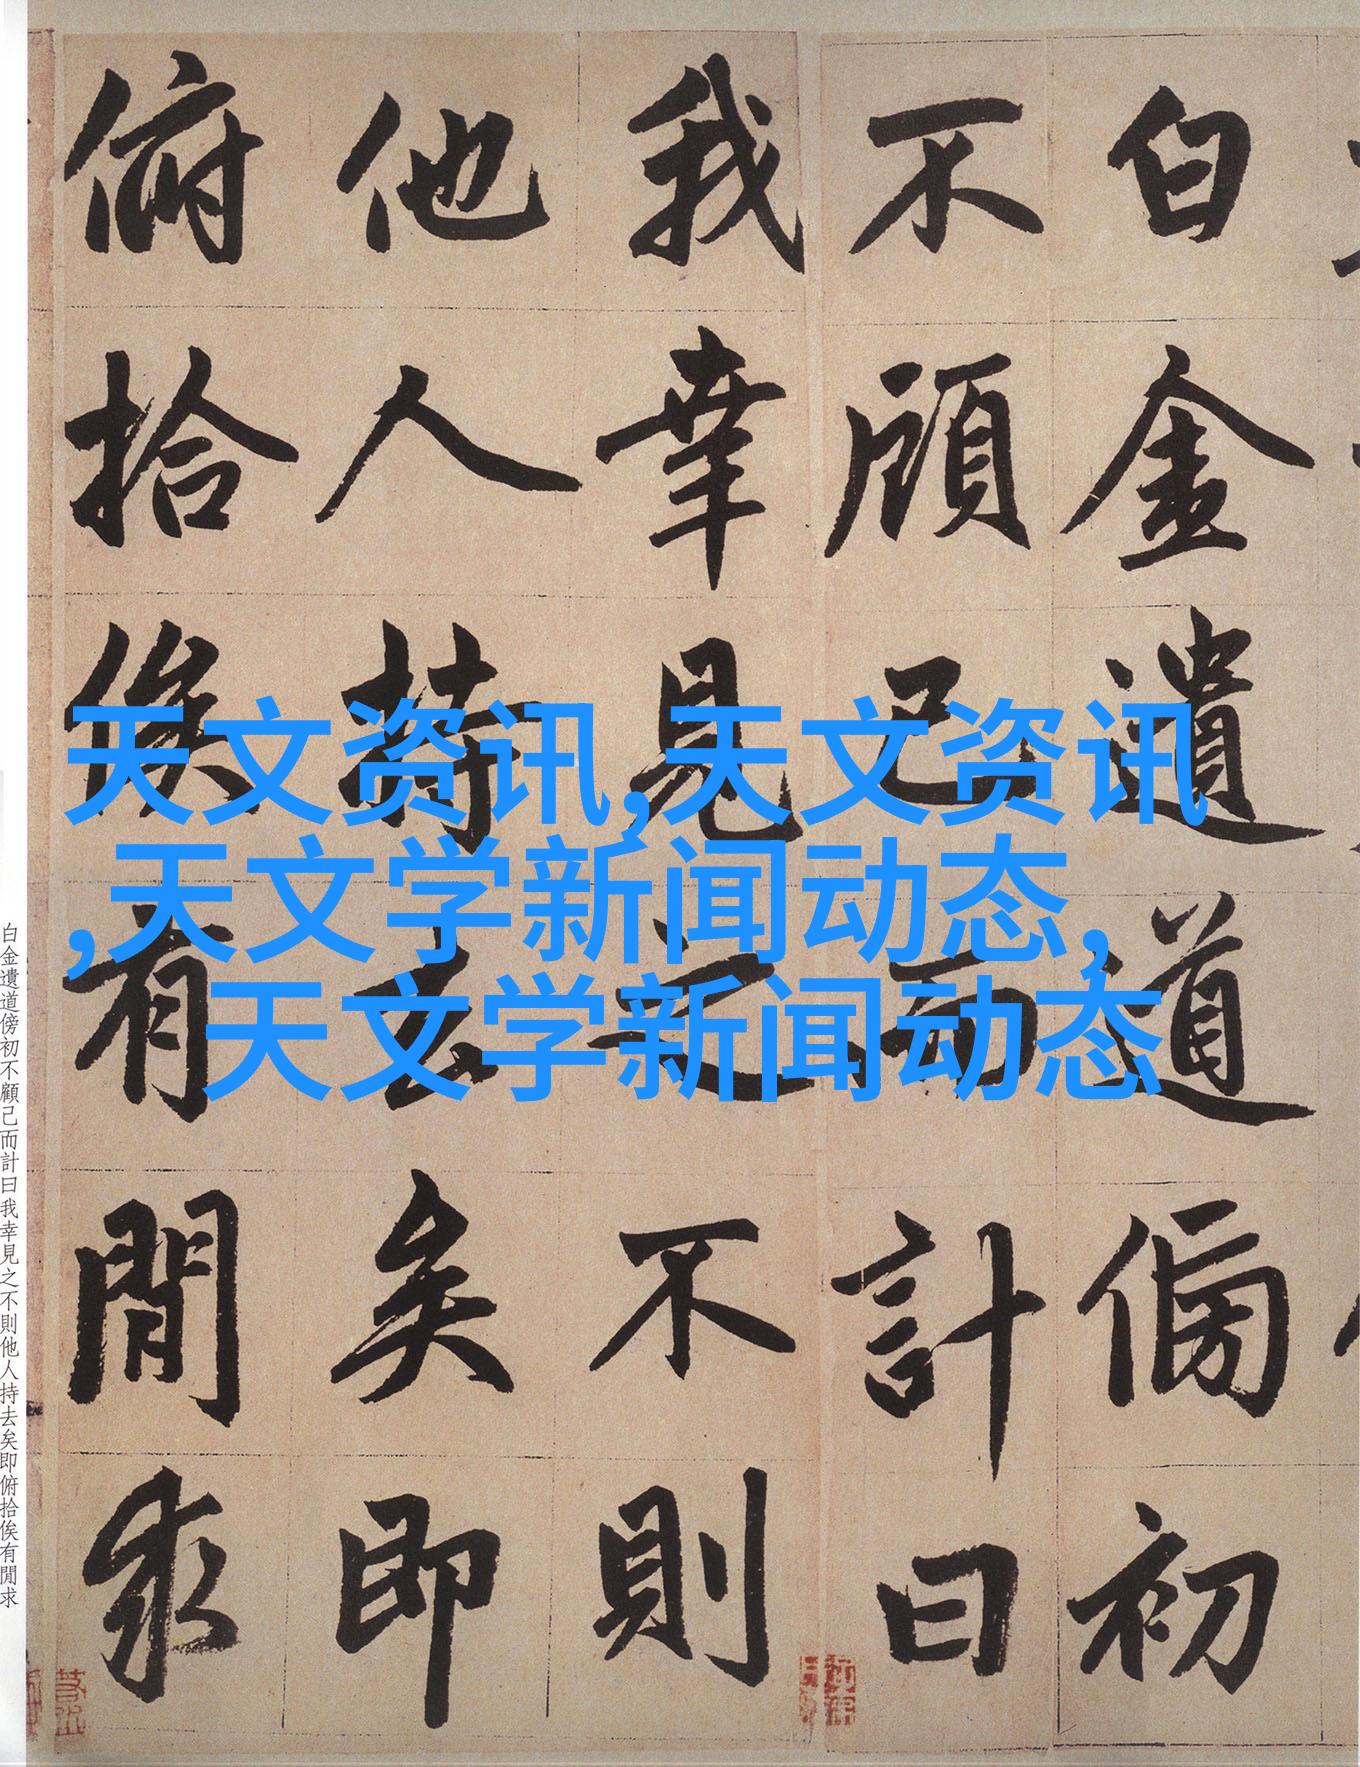 白金遺道傍初
不顧己而計曰
我幸見之不則
他人持去矣即
俯拾俟有閒求
天文资讯,天文资讯
,天文学新闻动态,
天文学新闻动态
白金遺道傍初不顧己而計曰我幸見之不則他人持去矣即俯拾俟有閒求